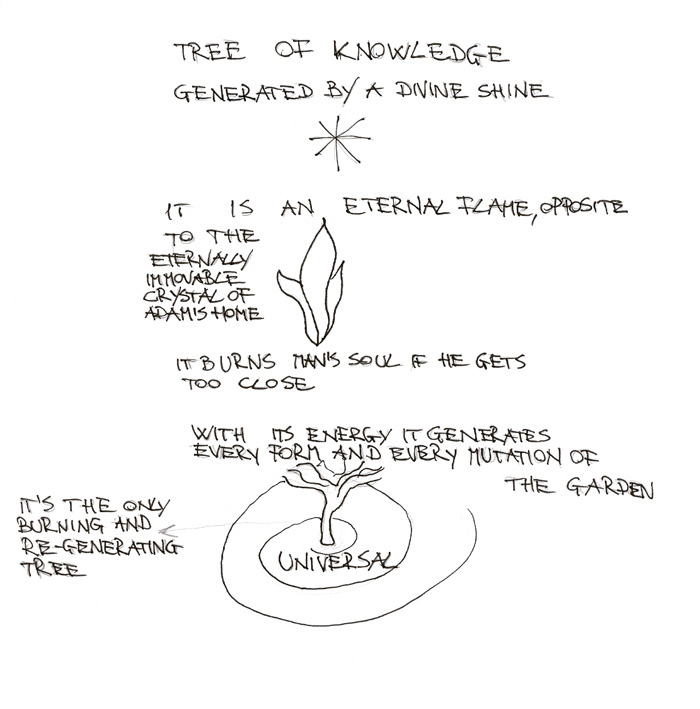 TREE OF KNOWLEDGE
GENERATED BY A DIVINE SHINE
IT IS AN ETERNAL FLAME, OPPOSITE
TO THE
ETERNALLY
IMMOVABLE
CRYSTAL OF
ADAM'S HOME
IT BURNS MAN'S SOUL IF HE GETS
TOO CLOSE
WITH ITS ENERGY IT GENERATES
EVERY FORM AND EVERY MUTATION OF
THE GARDEN
IT'S THE ONLY
BURNING AND
RE-GENERATING
TREE
UNIVERSAL